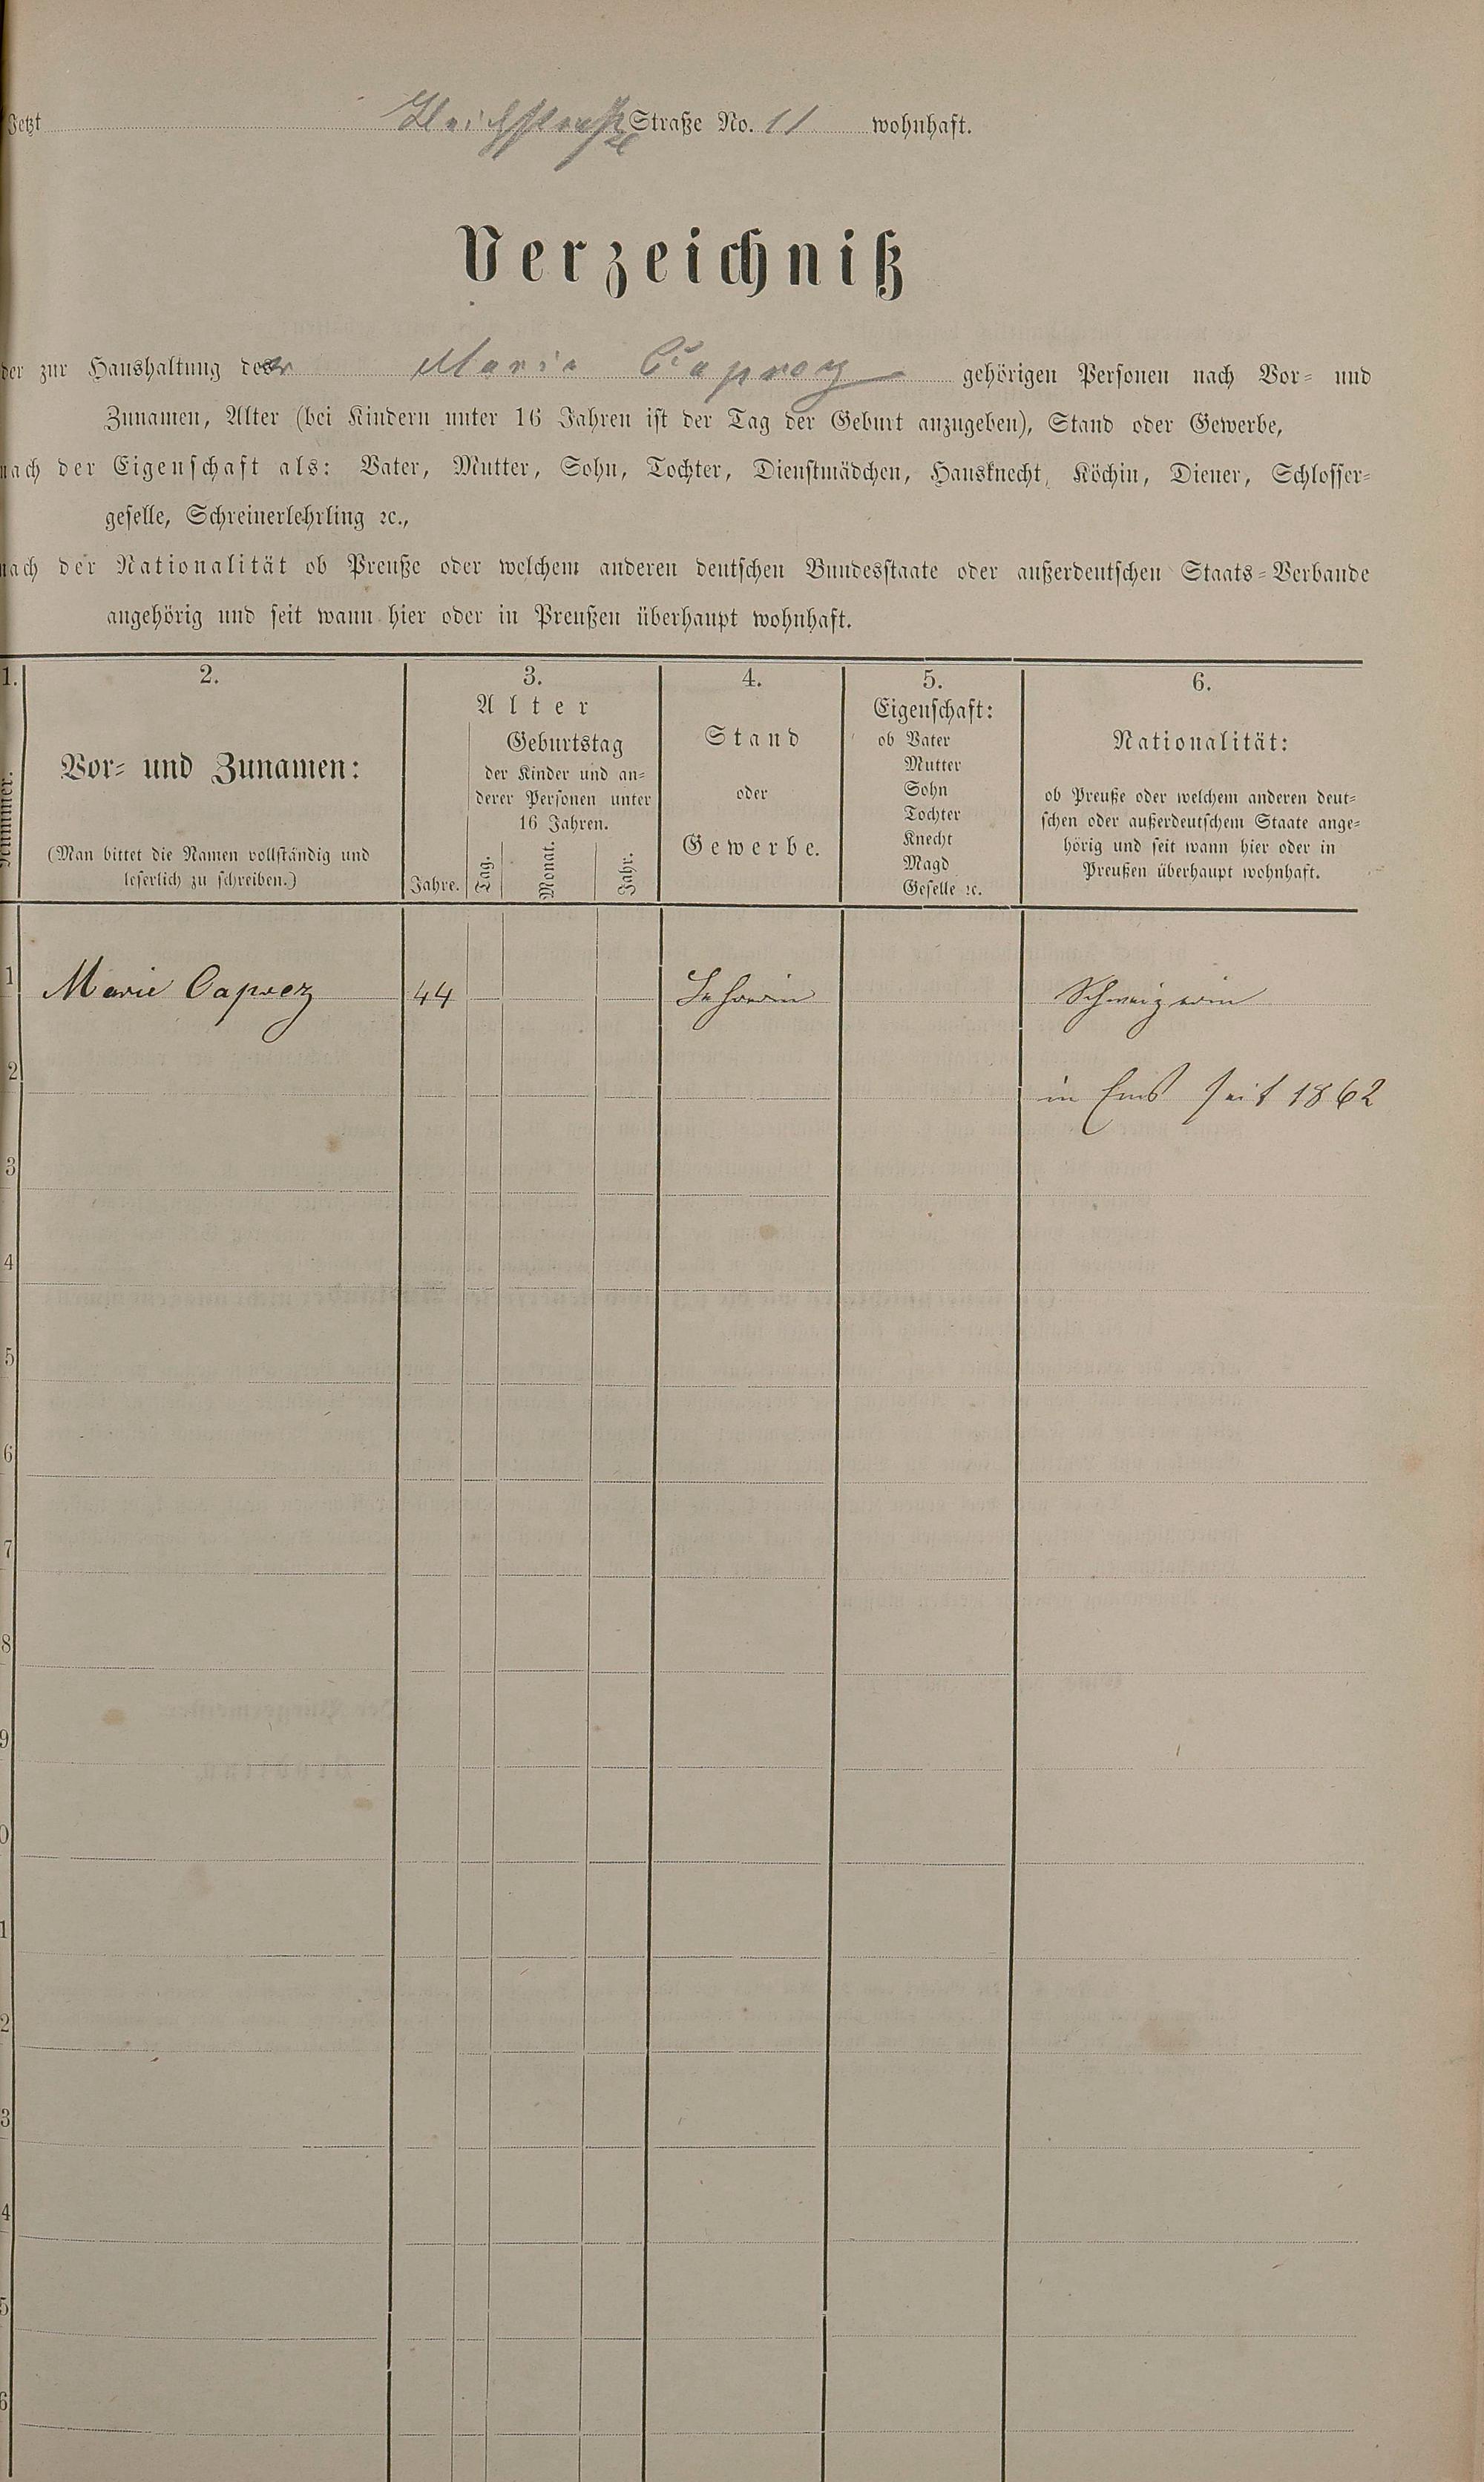 Jetzt Straße No. 11 wohnhaft.
Verzeichniß
der zur Haushaltung der Marie Caprez gehörigen Personen nach Vor- und
Zunamen, Alter (bei Kindern unter 16 Jahren ist der Tag der Geburt anzugeben), Stand oder Gewerbe,
nach der Eigenschaft als: Vater, Mutter, Sohn, Tochter, Dienstmädchen, Hausknecht, Köchin, Diener, Schlosser-
geselle, Schreinerlehrling ꝛc.,
nach der Nationalität ob Preuße oder welchem anderen deutschen Bundesstaate oder außerdeutschen Staats-Verbande
angehörig und seit wann hier oder in Preußen überhaupt wohnhaft.
1.
2.
Vor- und Zunamen:
(Man bittet die Namen vollständig und
leserlich zu schreiben.)
3.
Alter
Geburtstag
der Kinder und an-
derer Personen unter
16 Jahren.
Jahre.
Tag.
Monat.
Jahr.
4.
Stand
oder
Gewerbe.
5.
Eigenschaft:
ob Vater
Mutter
Sohn
Tochter
Knecht
Magd
Geselle ꝛc.
6.
Nationalität:
ob Preuße oder welchem anderen deut-
schen oder außerdeutschem Staate ange-
hörig und seit wann hier oder in
Preußen überhaupt wohnhaft.
1 Marie Caprez 44 Lehrerin Schweizerin
2 in Ems seit 1862
3
4
5
6
7
8
9
0
1
2
3
4
5
6